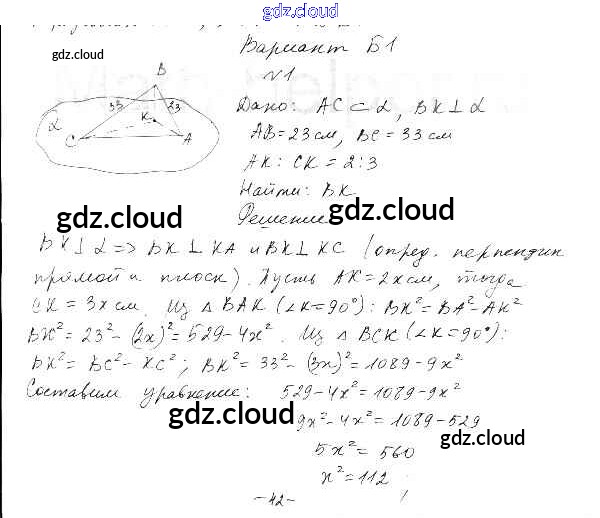 gdz.cloud
gdz.cloud
Вариант Б1
N1
В
33
23
К
α
С
А
Дано: AC ⊂ α, BK ⊥ α
AB = 23 см, BC = 33 см
AK : CK = 2:3
Найти: BK
gdz.cloud
gdz.cloud
Решение
BK ⊥ α => BK ⊥ KA и BK ⊥ KC (опред. перпендик
прямой и плоск). Пусть AK = 2x см, тогда
gdz.cloud
gdz.cloud
CK = 3x см. Из △ BAK (∠K=90°): BK² = BA² - AK²
BK² = 23² - (2x)² = 529 - 4x². Из △ BCK (∠K=90°):
BK² = BC² - KC²; BK² = 33² - (3x)² = 1089 - 9x²
Составим уравнение: 529 - 4x² = 1089 - 9x²
gdz.cloud
9x² - 4x² = 1089 - 529
gdz.cloud
5x² = 560
x² = 112
-42-
gdz.cloud